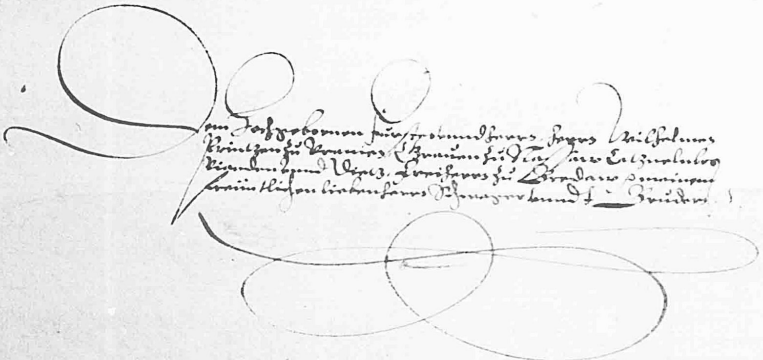 Dem Hochgebornen Fürsten unnd Herrn, Herrn Wilhelmen
Printzen zu Uranien, Graven zu Nassaw Catzenelnbogen
Vianden unnd Dietz, Freiherrn zu Bredaw, meinem
freuntlichen lieben Herrn Schwager unnd Brudern